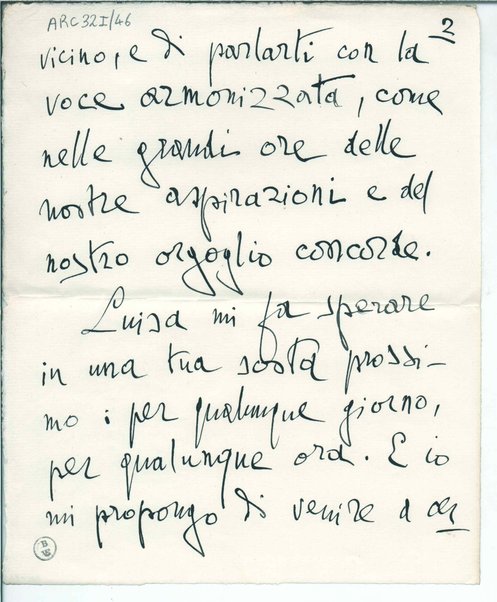 ARC32I/46
2
vicino, e di parlarti con la
voce armonizzata, come
nelle grandi ore delle
nostre aspirazioni e del
nostro orgoglio concorde.
Luisa mi fa sperare
in una tua sosta prossi-
mo : per qualunque giorno,
per qualunque ora. E io
mi propongo di venire a cer